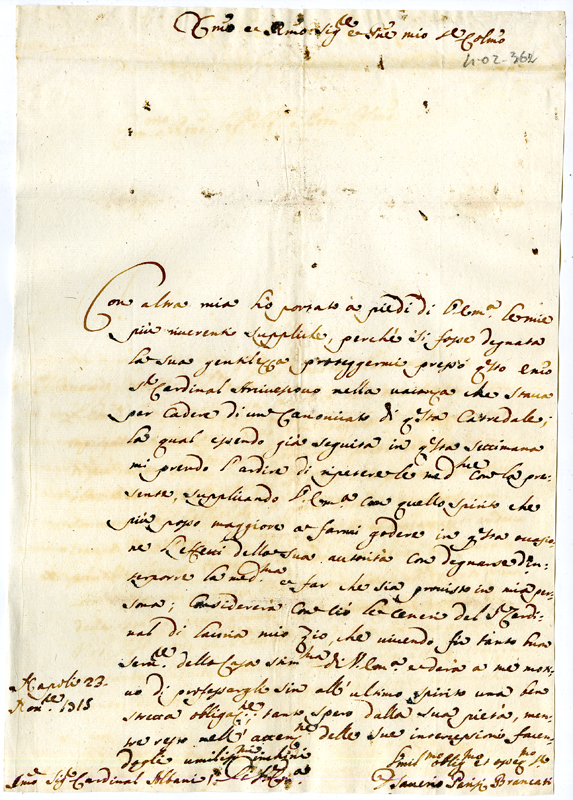 Emo et Rmo Sigre et Prne mio Sre Colmo
4-02-362
Con altra mia hò portato à piedi di V. Em.a le mie
più riverenti suppliche, perché si fosse degnata
la sua gentilezza proteggermi presso q.sto Emo
S.r Cardinal Arcivescovo nella vacanza che stava
per cadere di un Canonicato di q.sta Catredale;
la qual essendo già seguita in q.sta settimana
mi prendo l'ardire di ripetere le med.me con la pre-
sente, supplicando V. Em.a con quello spirito che
più posso maggiore a farmi godere in q.sta occasio-
ne l'effetti della sua autorità con degnarse d'in-
terporre la med.ma et far che sia provisto in mia per-
sona; considererà con ciò le ceneri del S.r Cardi-
nal di Lauria mio zio, che vivendo fù tanto buon
ser.re della Casa di V. Em.a e darà a me moti-
vo di professargle sin all' ultimo spirito una ben
stretta obligaz.ne: tanto spero dalla sua pietà, men-
tre resto nell' delle sue intercessioni facen-
dogli umiliss.mi inchini
Napoli 23
Nov.re 1715
Emo Sig.r Cardinal Albani
Umil.mo oblig.mo
Saverio Brancati